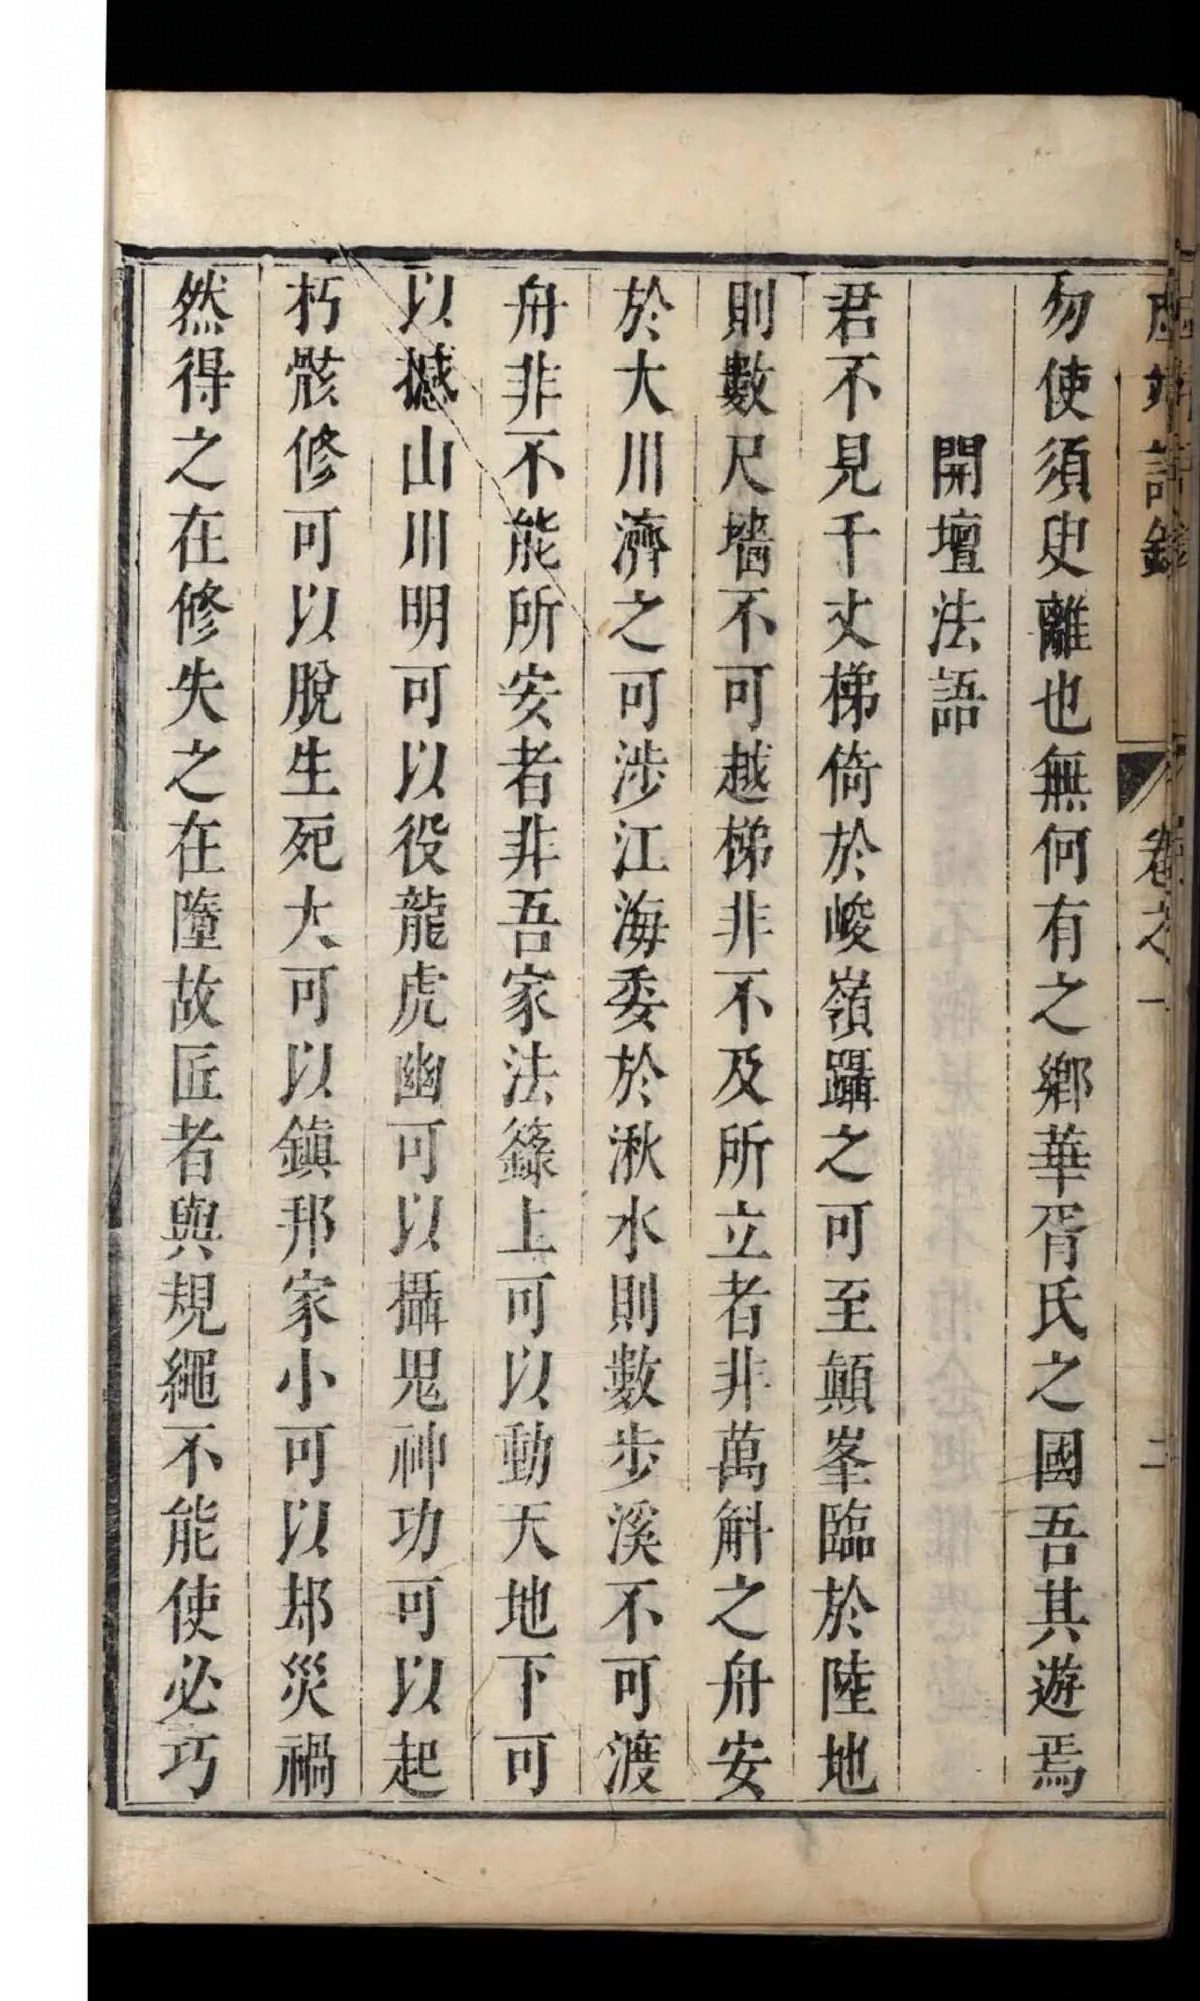 勿使須臾離也無何有之鄉華胥氏之國吾其遊焉
開壇法語
君不見千丈梯倚於峻嶺躡之可至顛峯臨於陸地
則數尺墻不可越梯非不及所立者非萬斛之舟安
於大川濟之可涉江海委於湫水則數步溪不可渡
舟非不能所安者非吾家法籙上可以動天地下可
以撼山川明可以役龍虎幽可以攝鬼神功可以起
朽骸修可以脫生死大可以鎮邦家小可以却災禍
然得之在修失之在墮故匠者與規繩不能使必巧
卷之一
二